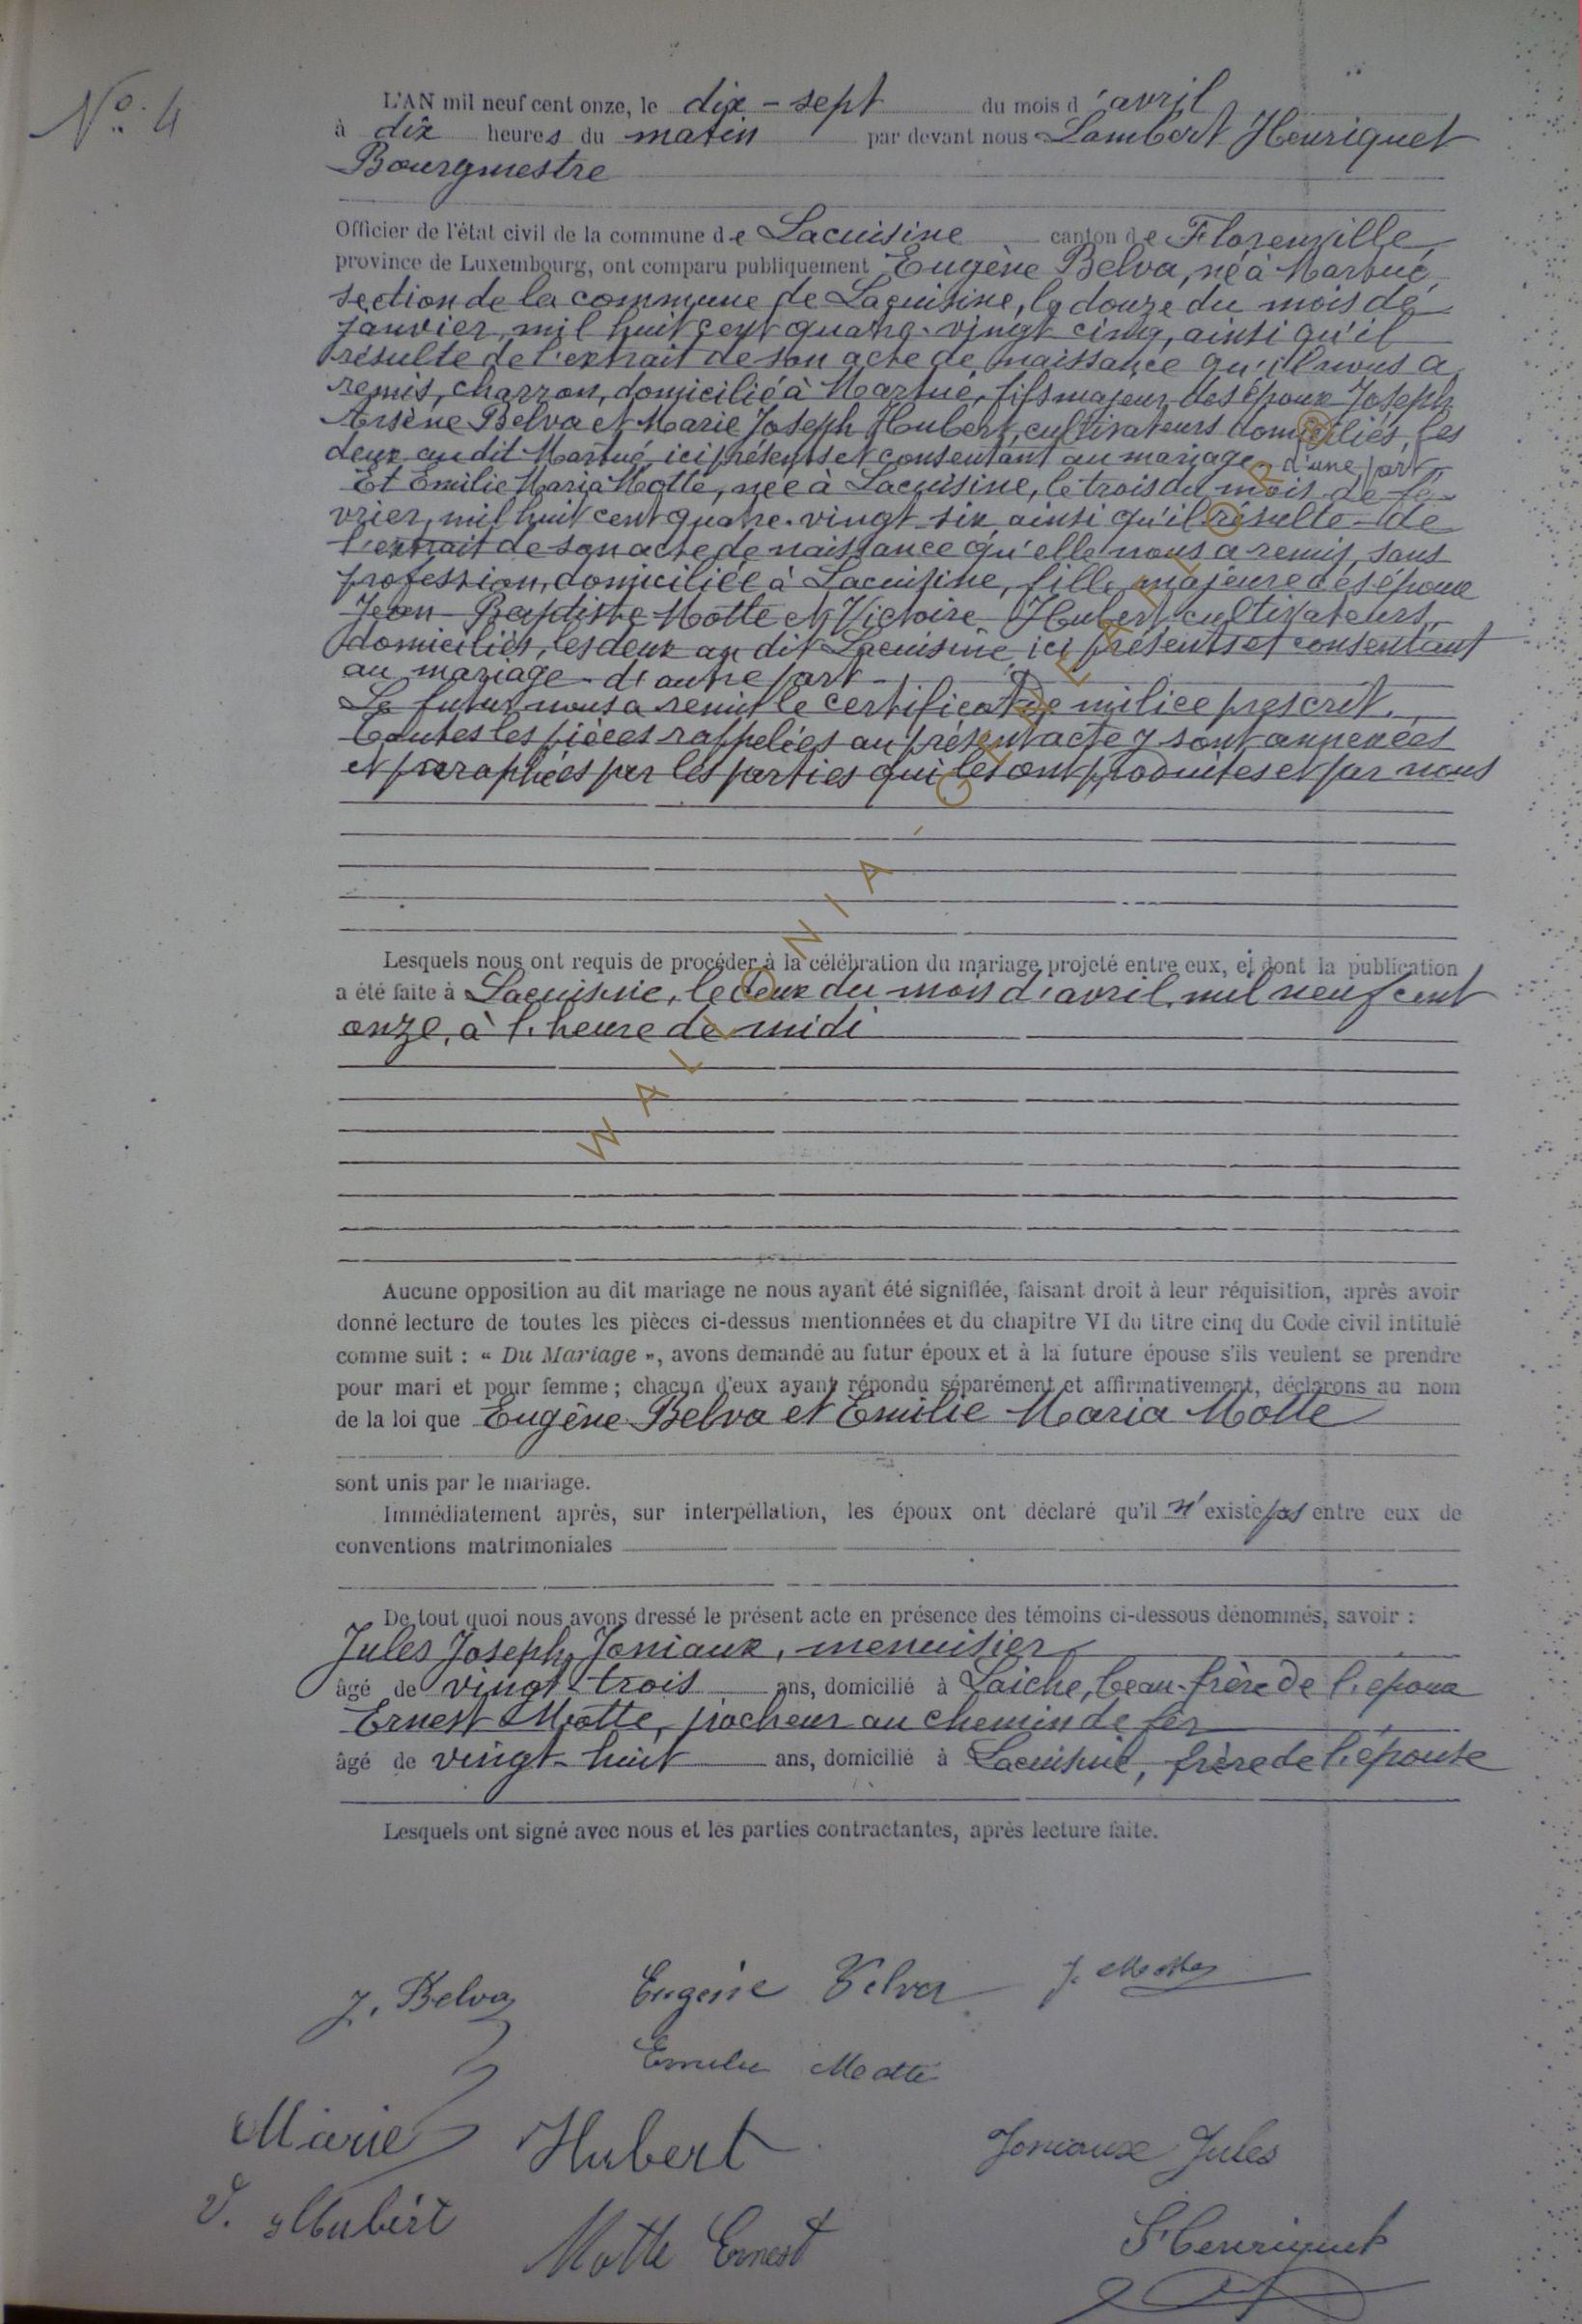 No. 4
L'AN mil neuf cent onze, le dix-sept du mois d'avril
à dix heures du matin par devant nous Lambert Henriquet
Bourgmestre
Officier de l'état civil de la commune de Lacuisine canton de Florenville
province de Luxembourg, ont comparu publiquement Eugène Belva, né à Martué,
section de la commune de Lacuisine, le douze du mois de
janvier, mil huit cent quatre-vingt cinq, ainsi qu'il
résulte de l'extrait de son acte de naissance qu'il nous a
remis, charron, domicilié à Martué, fils majeur des époux Joseph
Arsène Belva et Marie Joseph Hubert, cultivateurs domiciliés, les
deux au dit Martué, ici présents et consentant au mariage d'une part
Et Emilie Maria Motte, née à Lacuisine, le trois du mois de fé-
vrier, mil huit cent quatre-vingt six, ainsi qu'il résulte de
l'extrait de son acte de naissance qu'elle nous a remis, sans
profession, domiciliée à Lacuisine, fille majeure des époux
Jean Baptiste Motte et Victoire Hubert, cultivateurs,
domiciliés, les deux au dit Lacuisine, ici présents et consentant
au mariage - d'autre part -
Le futur nous a remis le certificat de milice prescrit.
Toutes les pièces rappelées au présent acte y sont annexées
et paraphées par les parties qui les ont produites et par nous
Lesquels nous ont requis de procéder à la célébration du mariage projeté entre eux, et dont la publication
a été faite à Lacuisine, le deux du mois d'avril, mil neuf cent
onze, à l'heure de midi
WALLONIA - GENEALOR
Aucune opposition au dit mariage ne nous ayant été signifiée, faisant droit à leur réquisition, après avoir
donné lecture de toutes les pièces ci-dessus mentionnées et du chapitre VI du titre cinq du Code civil intitulé
comme suit : « Du Mariage », avons demandé au futur époux et à la future épouse s'ils veulent se prendre
pour mari et pour femme ; chacun d'eux ayant répondu séparément et affirmativement, déclarons au nom
de la loi que Eugène Belva et Emilie Maria Motte
sont unis par le mariage.
Immédiatement après, sur interpellation, les époux ont déclaré qu'il n'existe pas entre eux de
conventions matrimoniales
De tout quoi nous avons dressé le présent acte en présence des témoins ci-dessous dénommés, savoir :
Jules Joseph Joniaux, menuisier
âgé de vingt-trois ans, domicilié à Laiche, beau-frère de l'époux
Ernest Motte, piocheur au chemin de fer
âgé de vingt-huit ans, domicilié à Lacuisine, frère de l'épouse
Lesquels ont signé avec nous et les parties contractantes, après lecture faite.
J. Belva Eugène Belva J. Motte
Emilie Motte
Marie Hubert Joniaux Jules
V. Hubert Motte Ernest L Henriquet